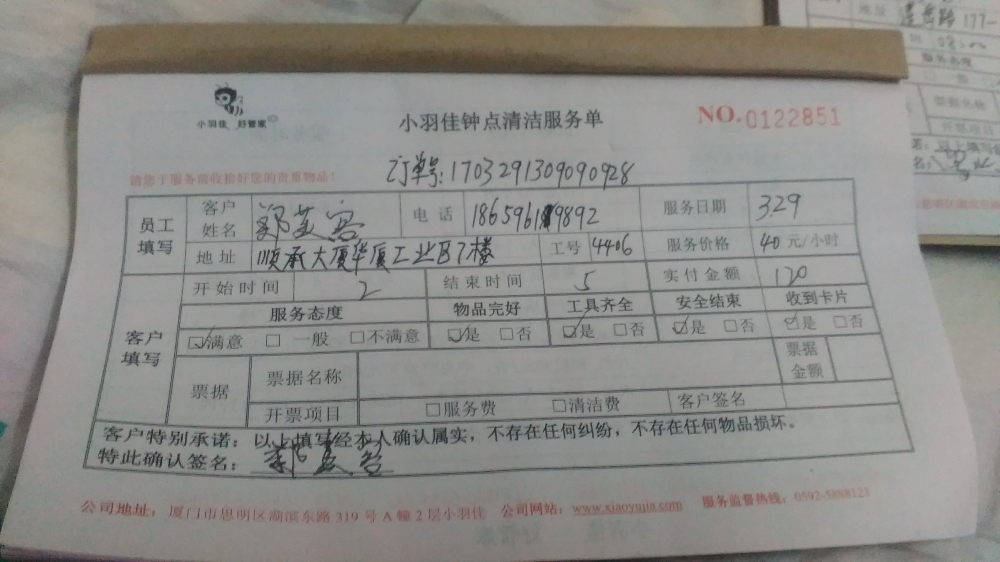 小羽佳 好管家
小羽佳钟点清洁服务单
NO.0122851
订单号:1703291309090928
请您于服务前收捡好您的贵重物品!
员工填写 客户姓名 郑芝容 电话 服务日期 3.29
地址 顺承大厦华厦工业B7楼 工号 4406 服务价格 40 元/小时
开始时间 2 结束时间 5 实付金额 120
客户填写 服务态度 物品完好 工具齐全 安全结束 收到卡片
☑满意 □ 一般 □不满意 ☑是 □否 ☑是 □否 ☑是 □否 ☑是 □否
票据 票据名称 票据金额
开票项目 □服务费 □清洁费 客户签名
客户特别承诺:以上填写经本人确认属实,不存在任何纠纷,不存在任何物品损坏。
特此确认签名:
公司地址:厦门市思明区湖滨东路 319 号 A 幢 2 层小羽佳 公司网站:www.xiaoyujia.com 服务监督热线:0592-5888123
地址 177-
服务态度
□ 一般
票据名称
开票项目